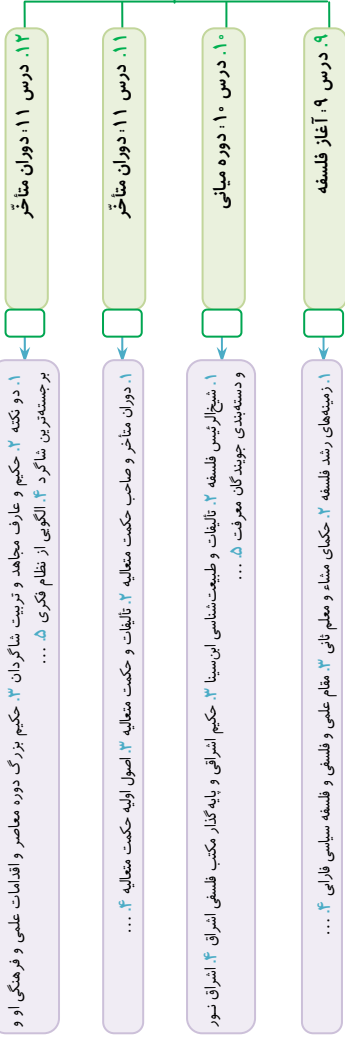 ۹. درس ۹: آغاز فلسفه
۱. زمینه‌های رشد فلسفه ۲. حکمای مشاء و معلم ثانی ۳. مقام علمی و فلسفی و فلسفه سیاسی فارابی ۴. ...
۱۰. درس ۱۰: دوره میانی
۱. شیخ‌الرئیس فلسفه ۲. تألیفات و طبیعت‌شناسی ابن‌سینا ۳. حکیم اشراقی و پایه‌گذار مکتب فلسفی اشراق ۴. اشراق نـور
و دسته‌بندی جویندگان معرفت ۵. ...
۱۱. درس ۱۱: دوران متأخّر
۱. دوران متأخر و صاحب حکمت متعالیه ۲. تألیفات و حکمت متعالیه ۳. اصول اولیه حکمت متعالیه ۴. ...
۱۲. درس ۱۱: دوران متأخّر
۱. دو نکته ۲. حکیم و عارف مجاهد و تربیت شاگردان ۳. حکیم بزرگ دوره معاصر و اقدامات علمی و فرهنگی او و
برجسته‌ترین شاگرد ۴. الگویی از نظام فکری ۵. ...